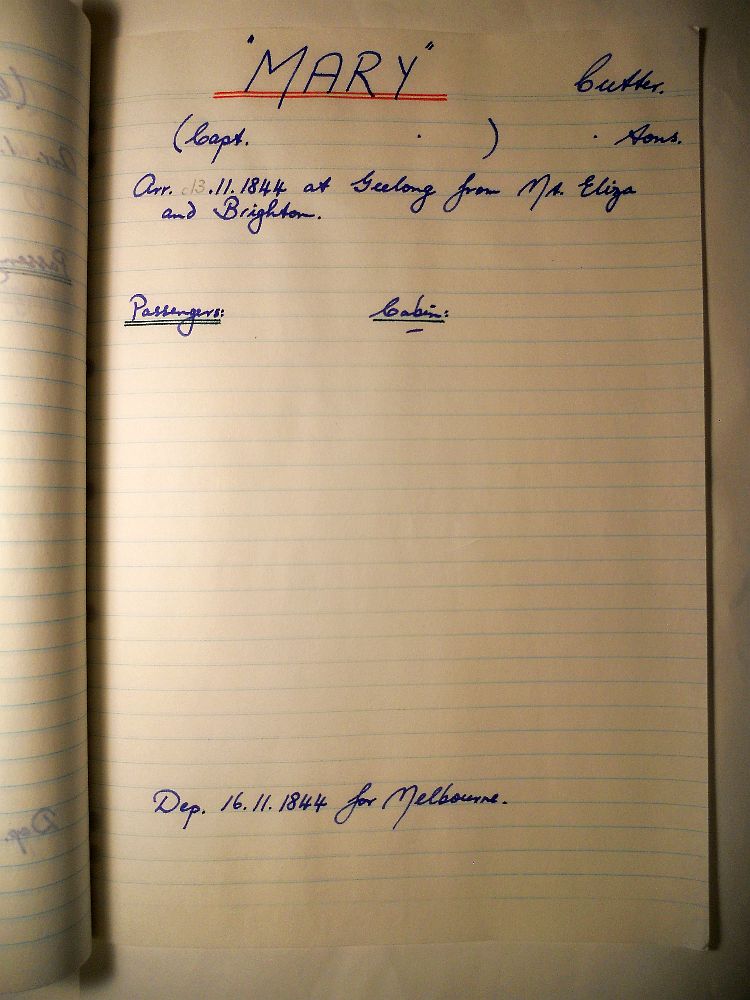 "MARY" Cutter.
(Capt. . ) . tons.
Arr. c13.11.1844 at Geelong from Mt. Eliza
and Brighton.
Passengers: Cabin:
Dep. 16.11.1844 for Melbourne.